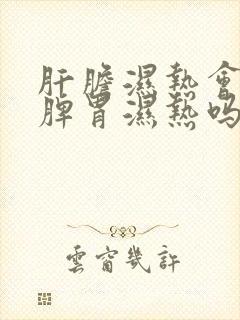 肝膽濕熱會
脾胃濕熱嗎
雲窗幾許